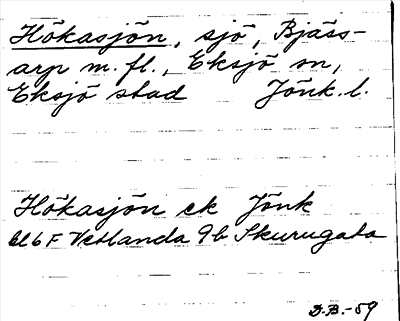 Hökasjön, sjö, Bjäss-
arp m. fl., Eksjö sn,
Eksjö stad Jönk. l.
Hökasjön ek Jönk
bl 6 F Vetlanda 9b Skurugata
D.B.-59